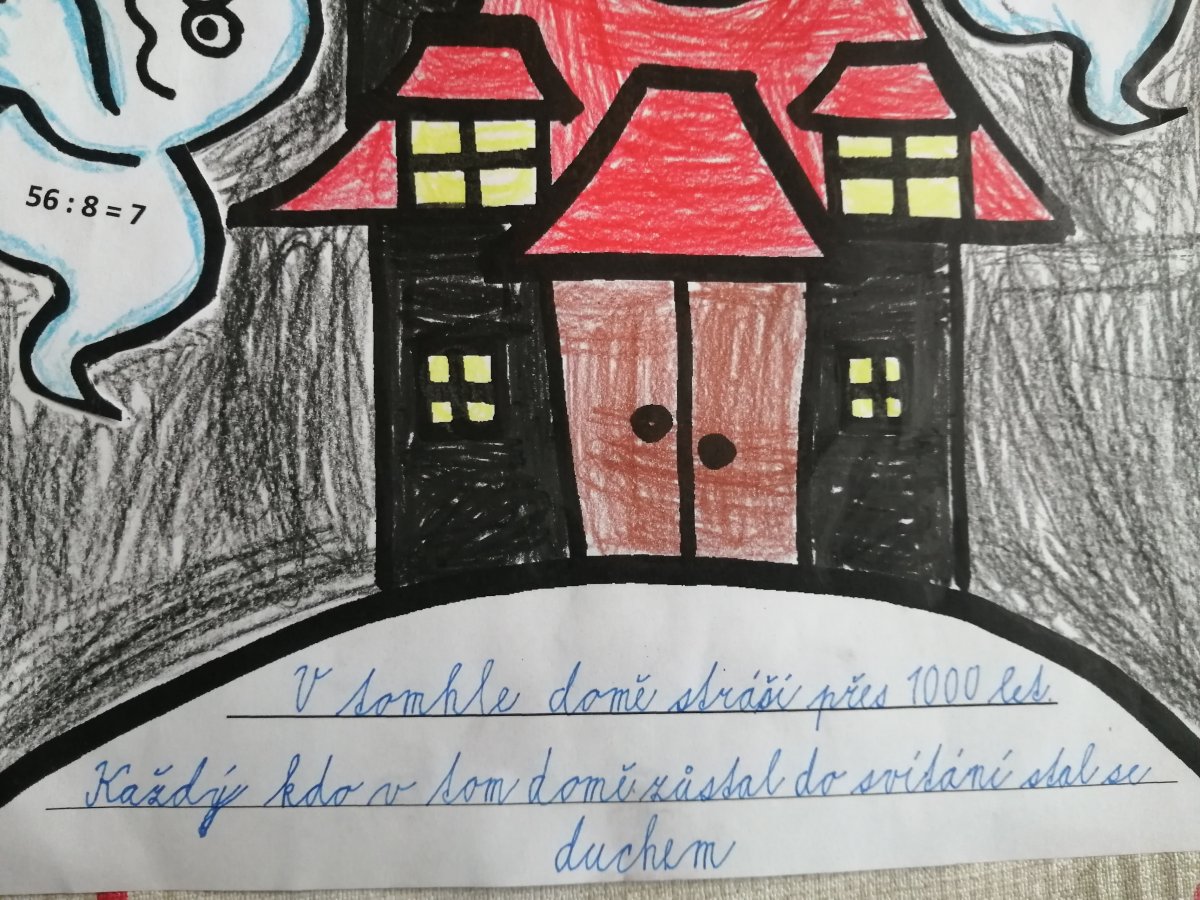 56 : 8 = 7
V tomhle domě stráší přes 1000 let.
Každý kdo v tom domě zůstal do svítání stal se
duchem